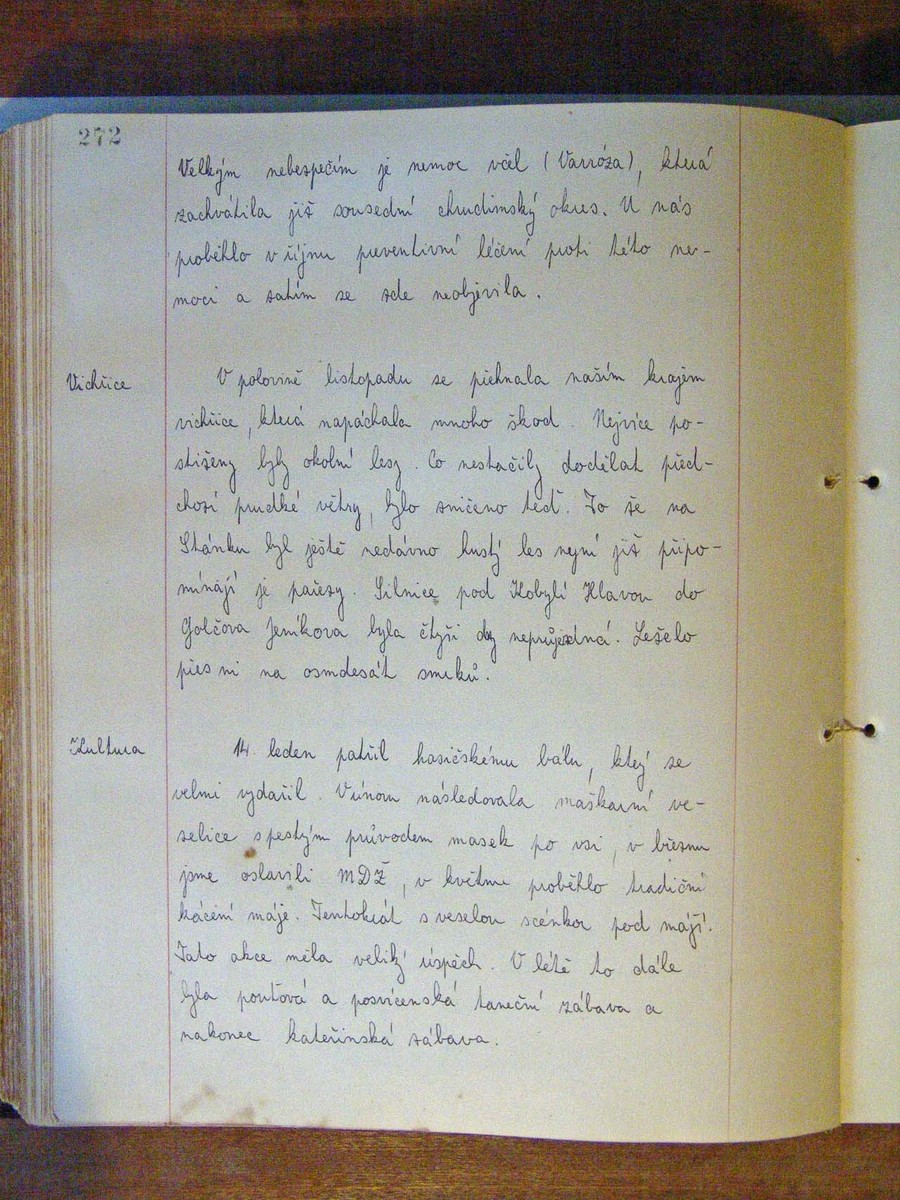 272
Velkým nebezpečím je nemoc včel (Varróza), která
zachvátila již sousední chrudimský okres. U nás
proběhlo v říjnu preventivní léčení proti této ne-
moci a zatím se zde neobjevila.
Vichřice
V polovině listopadu se přehnala naším krajem
vichřice, která napáchala mnoho škod. Nejvíce po-
stiženy byly okolní lesy. Co nestačily dodělat před-
chozí prudké větry, bylo zničeno teď. To že na
Stánku byl ještě nedávno hustý les nyní již připo-
mínájí je pařezy. Silnice pod Kobylí Hlavou do
Golčova Jeníkova byla čtyři dny neprůjezdná. Leželo
přes ni na osmdesát smrků.
Kultura
14. leden patřil hasičskému bálu, který se
velmi vydařil. Únorm následovala maškarní ve-
selice s pestrým průvodem masek po vsi, v březnu
jsme oslavili MDŽ, v květnu proběhlo tradiční
kácení máje. Tentokrát s veselou scénkou pod májí.
Tato akce měla veliký úspěch. V létě to dále
byla pouťová a posvícenská taneční zábava a
nakonec kateřinská zábava.